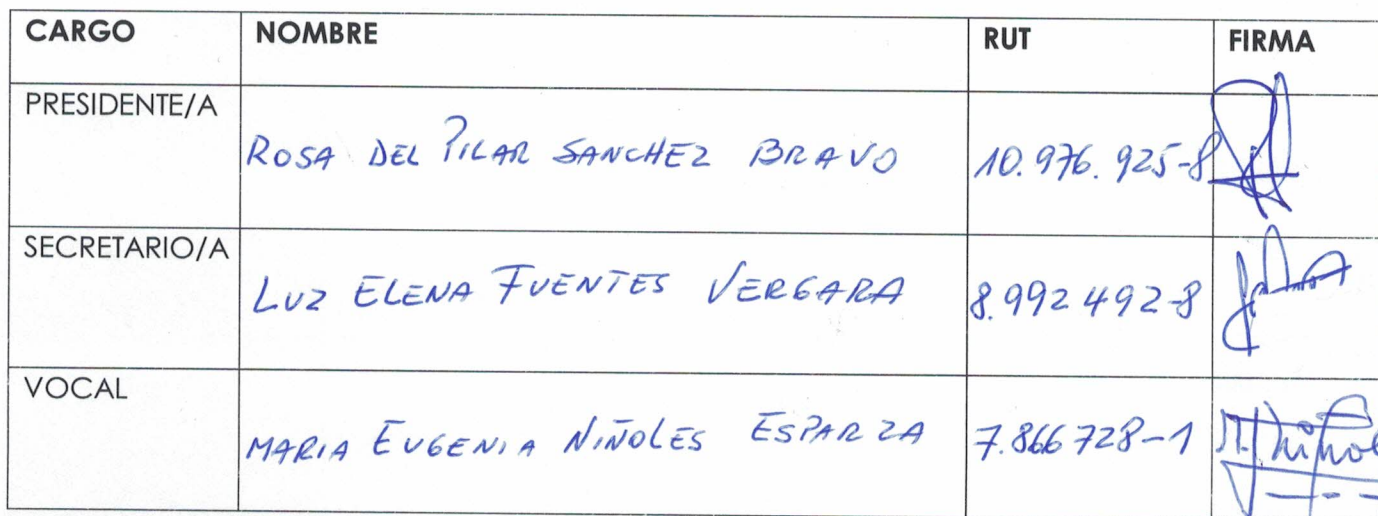 CARGO NOMBRE RUT FIRMA
PRESIDENTE/A
ROSA DEL PILAR SANCHEZ BRAVO 10.976.925-8
SECRETARIO/A
LUZ ELENA FUENTES VERGARA 8.992492-8
VOCAL
MARIA EUGENIA NIÑOLES ESPARZA 7.866728-1